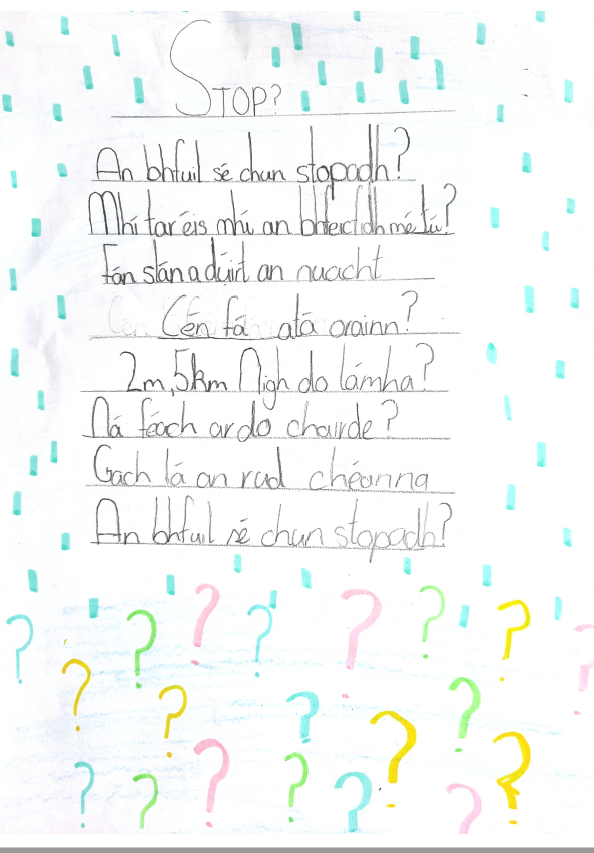 STOP?
An bhfuil sé chun stopadh?
Mhí taréis mhí an bhfeicfidh mé tú?
Fán slán a dúirt an nuacht
Cén fá atá orainn?
2m, 5km Nigh do lámha?
Ná féach ar do chairde?
Gach lá an rud chéanna
An bhfuil sé chun stopadh?